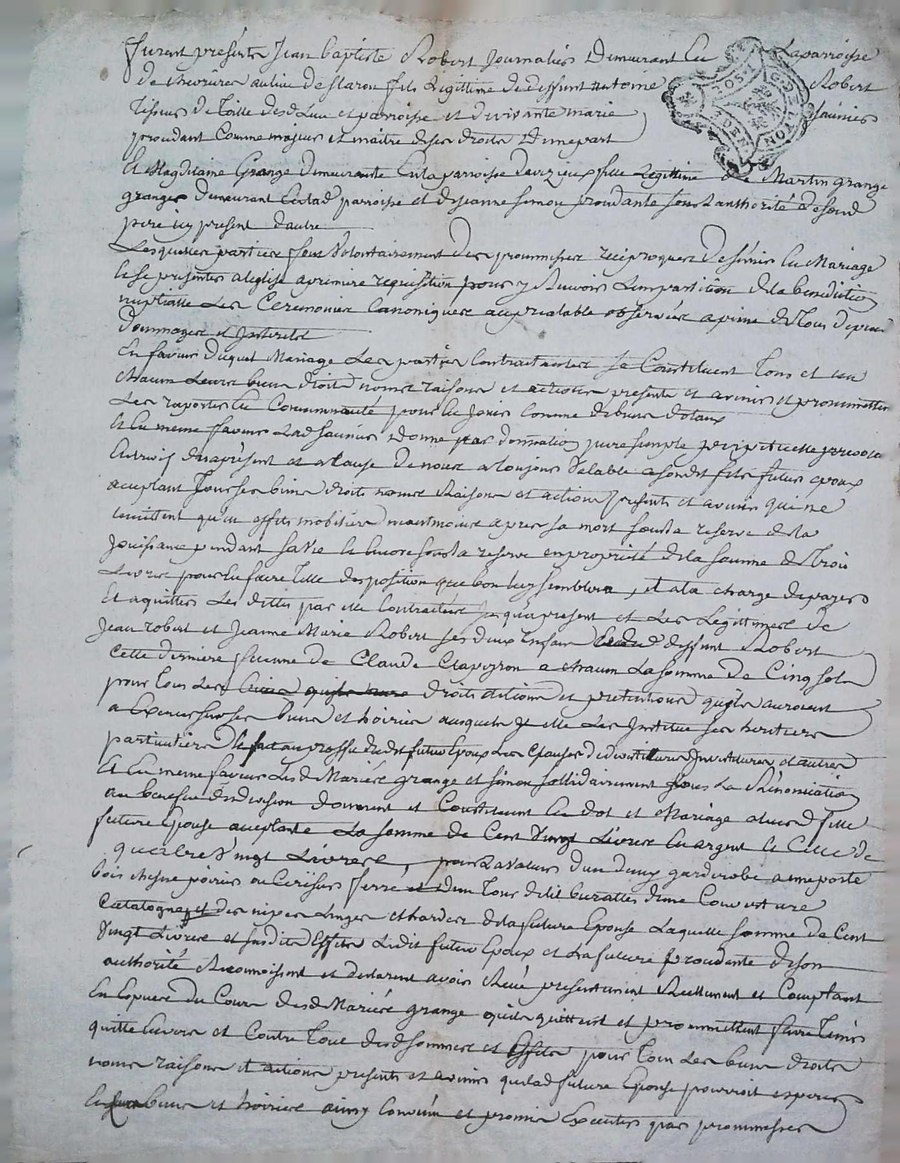 furent présents Jean baptiste Robert Journalier Demeurant en La parroisse
de chevrieres au lieu de fils Legittime de deffunt antoine Robert
Tisseur de Toille dud Lieu et parroisse et de vivante marie Jaunier
procedant Comme majeur et maitre de ses droits Dunepart
G DE LYON
Et Magdelaine Grange demeurante En la parroisse fille Legittime de Martin grange
granger demeurant En lad parroisse et de jeanne simon procedante sous Lauthorité de sond
pere icy present dautre
Lesquelles parties sous volontairement des promesses reciproques De Mariage
et se presenter a leglise a premiere requisition pour y Recevoir Limpartition de la benediction
nuptialle Les Ceremonies Canoniques au prealable observées a peine de Tous depens
Dommages et interets
En faveur duquel Mariage Les parties Contractantes se Constituent Tous et un
chacun Leurs biens droits noms raisons et actions presents et avenir et promettent
Les raporter En Communauté pour En jouir Comme de biens dotaux
Et En meme faveur Lad Jaunier donne par donnation pure simple perpetuelle
Entrevifs des apresent et a Cause de noces a Toujours valable a sondit fils futur Epoux
aceptant Tous ses biens droits noms Raisons et actions presents et avenir qui ne
Consistent qu'en effets mobiliers apres sa mort sous la reserve de la
Jouissance pendant sa vie et Encore sous la reserve en propriété de la somme de Trois
Livres pour En faire Telle disposition que bon luy semblera, et a la charge de payer
Et aquitter Les dettes par elle Contractées jusqu'apresent et Les Legittimes de
Jean robert et Jeanne Marie Robert ses deux Enfans deffunt Robert
Cette derniere femme de Claude Clapeyron a chacun La somme de Cinq sols
pour Tous Les droits actions et pretentions qu'ils auroient
a Exercer sur ses biens et hoirie auxquels elle Les Institue ses heritiers
particuliers Le fait au proffit dudit futur Epoux Les Clauses
Et En meme faveur Lesd Mariés grange et simon sollidairement sous La Renonciation
au benefice de division donnent et Constituent En dot et Mariage a leurd fille
future Epouse aceptante La somme de Cent Vingt Livres En argent et Celle de
quatre Vingt Livres, pour La valeur d'un garderobe a une porte
bois chesne poirier ou Cerisier ferré et d'un Tour de lit burattes d'une Couverture
Catalogne et des nipes Linges et hardes de la future Epouse Laquelle somme de Cent
Vingt Livres et susdits Effets Ledit futur Epoux et La future procedante de son
authorité Reconnoissent et declarent avoir Receu presentement Reellement et Comptant
En Especes du Cours desd Mariés grange qu'ils quittent et promettent faire Tenir
quitte Envers et Contre Tous desd sommes et Effets pour Tous Les biens droits
noms raisons et actions presents et avenir que lad future Epouse pourroit esperer
En biens et hoirie ainsy Convenu et promis Executer par promesses